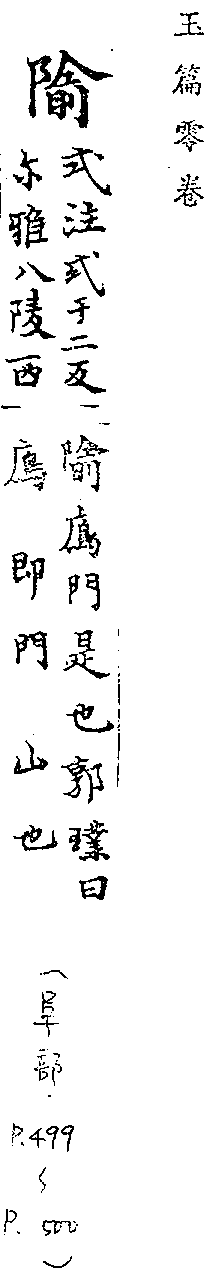 玉篇零卷
隃
式注式于二反
尓雅八陵西
隃鴈門是也郭璞曰
鴈即門山也
(阜部.
P.499
~
P. 500)